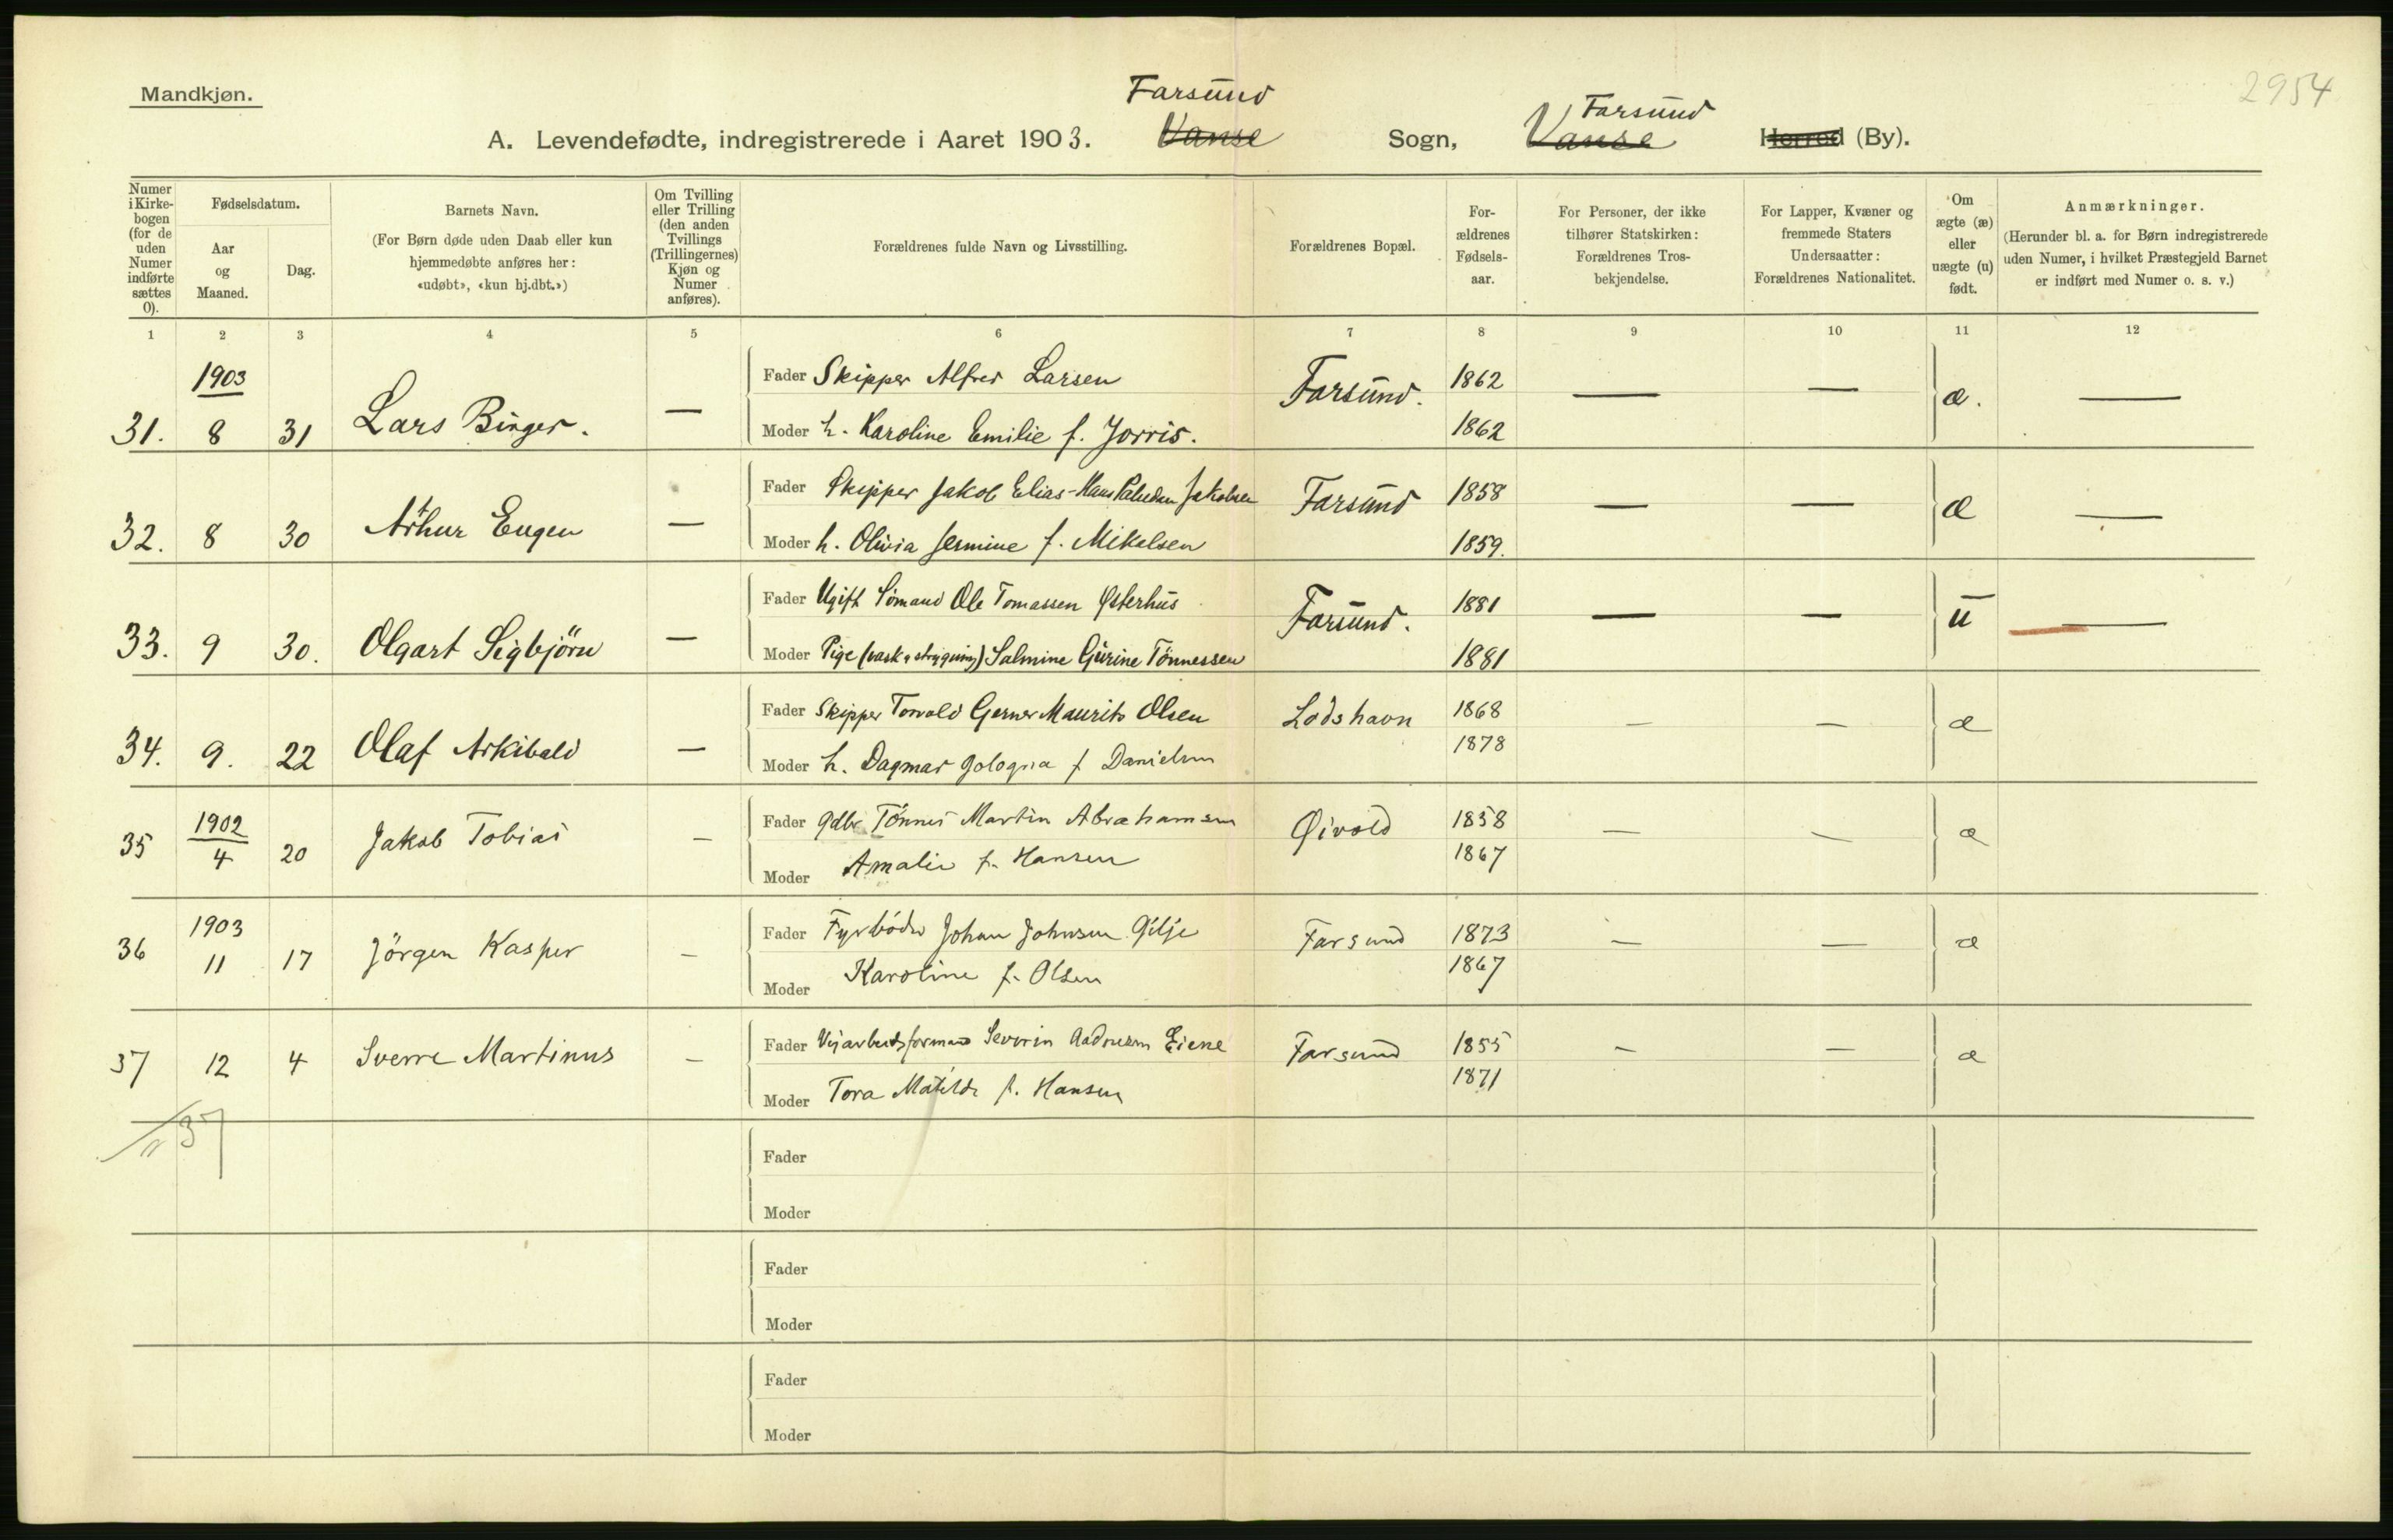 Mandkjøn.
2954
Farsund
Farsund
A. Levendefødte, indregistrerede i Aaret 1903. Vanse Sogn, Vanse Herred (By).
Numer i Kirkebogen (for de uden Numer indførte sættes 0).
Fødselsdatum.
Aar og Maaned.
Dag.
Barnets Navn.
(For Børn døde uden Daab eller kun hjemmedøbte anføres her: «udøbt», «kun hj.dbt.»)
Om Tvilling eller Trilling (den anden Tvillings (Trillingernes) Kjøn og Numer anføres).
Forældrenes fulde Navn og Livsstilling.
Forældrenes Bopæl.
For-ældrenes Fødsels-aar.
For Personer, der ikke tilhører Statskirken: Forældrenes Tros-bekjendelse.
For Lapper, Kvæner og fremmede Staters Undersaatter: Forældrenes Nationalitet.
Om ægte (æ) eller uægte (u) født.
Anmærkninger.
(Herunder bl. a. for Børn indregistrerede uden Numer, i hvilket Præstegjeld Barnet er indført med Numer o. s. v.)
1 2 3 4 5 6 7 8 9 10 11 12
1903
31. 8 31 Lars Birger. — Fader Skipper Alfred Larsen Farsund. 1862 — — æ. —
Moder h. Karoline Emilie f. Jorris. 1862
32. 8 30 Arthur Eugen — Fader Skipper Jakob Elias Hans Paludan Jakobsen Farsund 1858 — — æ —
Moder h. Olivia Jermine f. Mikalsen 1859.
33. 9 30. Olgart Sigbjörn — Fader Ugift Sömand Ole Tomassen Østerhus Farsund. 1881 — — u —
Moder Pige (vask & strygning) Salmine Gurine Tönnessen 1881
34. 9. 22 Olaf Arkibald — Fader Skipper Torvald Gerner Maurits Olsen Lodshavn 1868 — — æ
Moder h. Dagmar Gologna f Danielsen 1878
35 1902 4 20 Jakob Tobias — Fader Gdbr Tönnes Martin Abrahamsen Øivold 1858 — — æ
Moder Amalie f. Hansen 1867
36 1903 11 17 Jörgen Kasper — Fader Fyrböder Johan Johnsen Gilje Farsund 1873 — — æ
Moder Karoline f. Olsen 1867
37 12 4 Sverre Martinus — Fader Vejarbeidsformand Severin Aadnesen Eiene Farsund 1855 — — æ
Moder Tora Matilde f. Hansen 1871
37
Fader
Moder
Fader
Moder
Fader
Moder